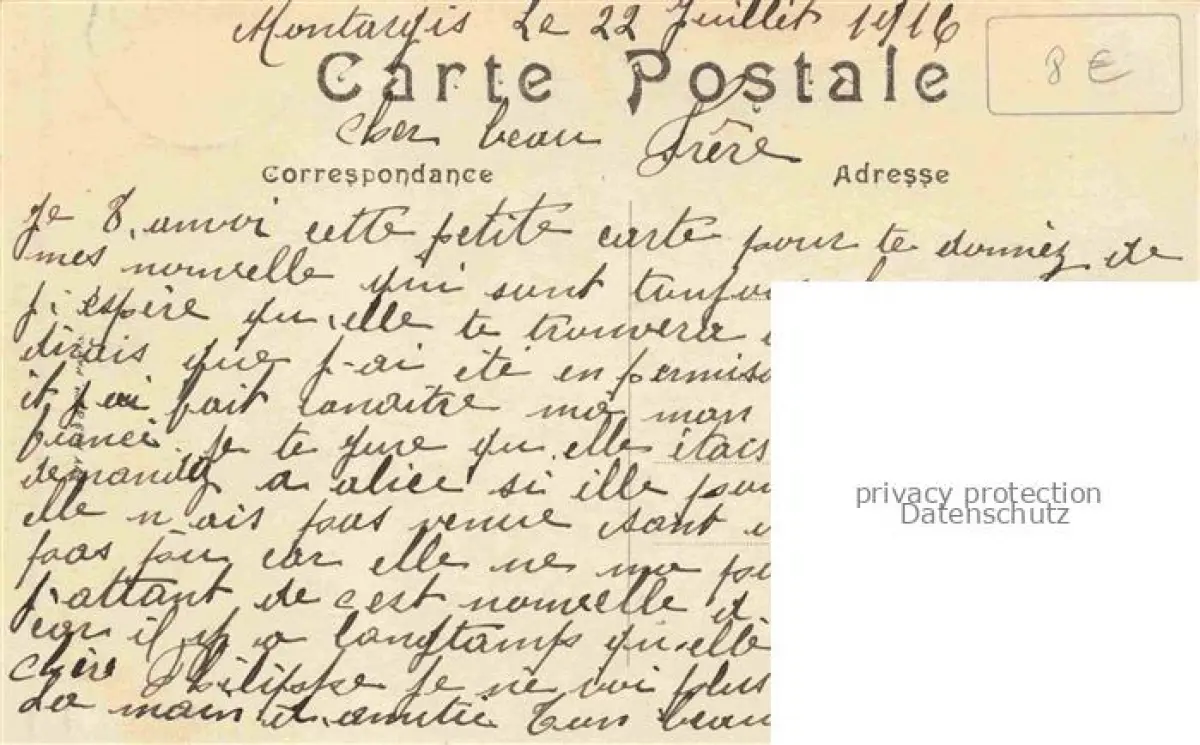 Montargis Le 22 Juillet 1916
Carte Postale
8 €
Cher beau Frère
Correspondance
Adresse
Je t, anvoi cette petite carte pour te donnez de
mes nouvelle qui sont
j, espère qu, elle te trouvera
dirais que j-ai été en
et j ai fait conaitre ma man
fiancé. Je te jure qu, elle étais
demandez a alice si elle
elle n ais pas venue sant
pas pu car elle ne ma
j-attant de c est nouvelle d
car il y a longtamps qu-elle
chère Philippe je ne voi plus
La main d, amitié Ton beau
privacy protection
Datenschutz